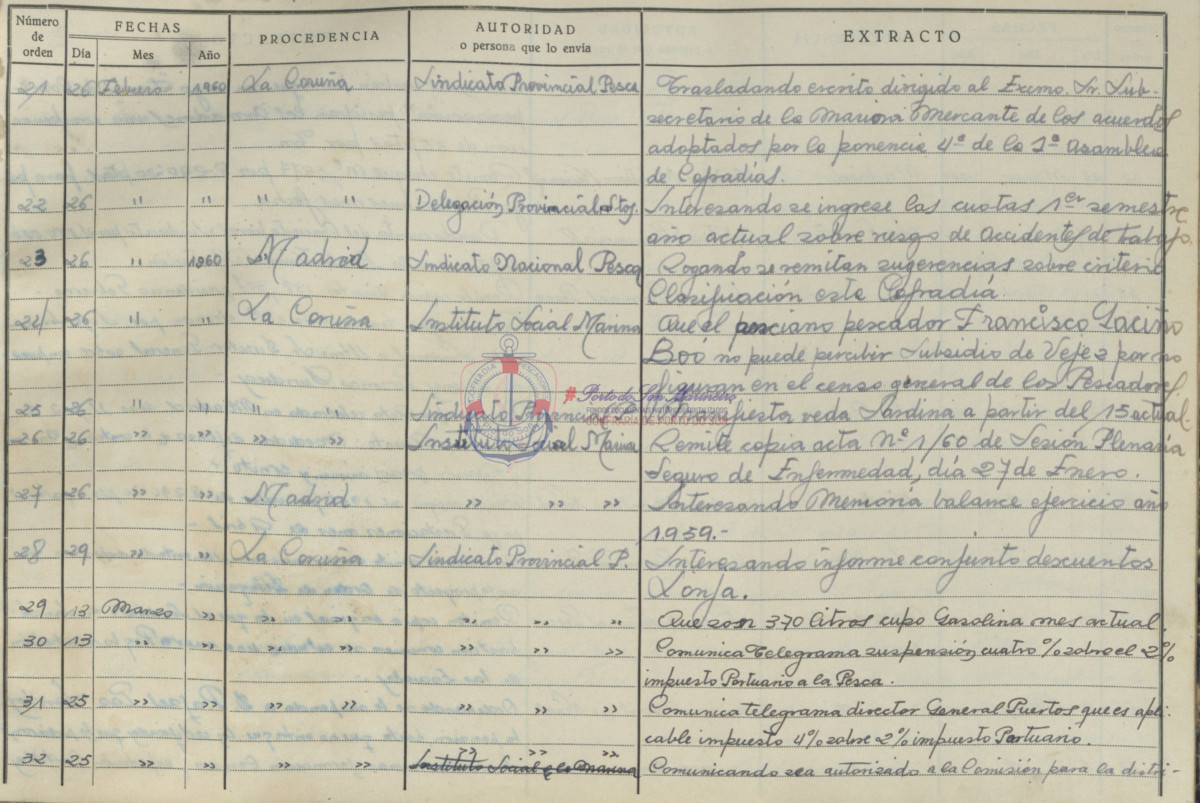 Número de orden FECHAS PROCEDENCIA AUTORIDAD o persona que lo envía EXTRACTO
Día Mes Año
21 26 Febrero 1960 La Coruña Sindicato Provincial Pesca Trasladando escrito dirigido al Excmo. Sr. Sub-
secretario de la Marina Mercante de los acuerdos
adoptados por la ponencia 4ª de la 1ª Asamblea
de Cofradías.
22 26 " " " " Delegación Provincial Interesando se ingrese las cuotas 1er semestre
año actual sobre riesgo de accidentes de trabajo.
23 26 " 1960 Madrid Sindicato Nacional Pesca Rogando se remitan sugerencias sobre criterio
Clasificación este Cofradía
24 26 " " La Coruña Instituto Social Marina Que el pescador Francisco Laciño
Boó no puede percibir Subsidio de Vejez por no
figuran en el censo general de los Pescadores
25 26 " " " " Sindicato Provincial manifiesta veda Sardina a partir del 15 actual.
26 26 " " " " Instituto Social Marina Remite copia acta Nº 1/60 de Sesión Plenaria
Seguro de Enfermedad, día 27 de Enero.
27 26 " " Madrid " " " Interesando Memoria balance ejercicio año
1959.-
28 29 " " La Coruña Sindicato Provincial P. Interesando informe conjunto descuentos
Lonja.
29 13 Marzo " " " " " " Que son 370 litros cupo Gasolina mes actual.
30 13 " " " " " " " Comunica Telegrama suspensión cuatro % sobre el 2%
impuesto Portuario a la Pesca.
31 25 " " " " " " " Comunica telegrama director General Puertos que es apli-
cable impuesto 4% sobre 2% impuesto Portuario.
" " "
32 25 " " " " Instituto Social de la Marina Comunicando sea autorizado a la Comisión para la distri-
COFRADIA
#Porto do Son Marinheiro
CONFRARÍA DE PORTO DO SON